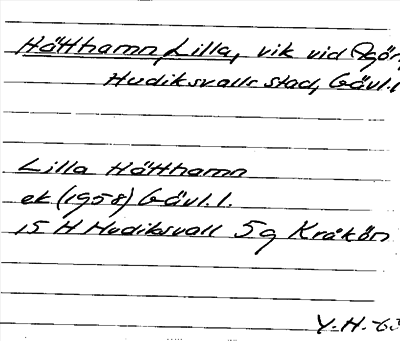 Hätthamn, Lilla, vik vid
Hudiksvalls stad, Gävl.l
Lilla Hätthamn
ek (1958) Gävl.l.
15 H Hudiksvall 5g Kråkön
Y.H.-63